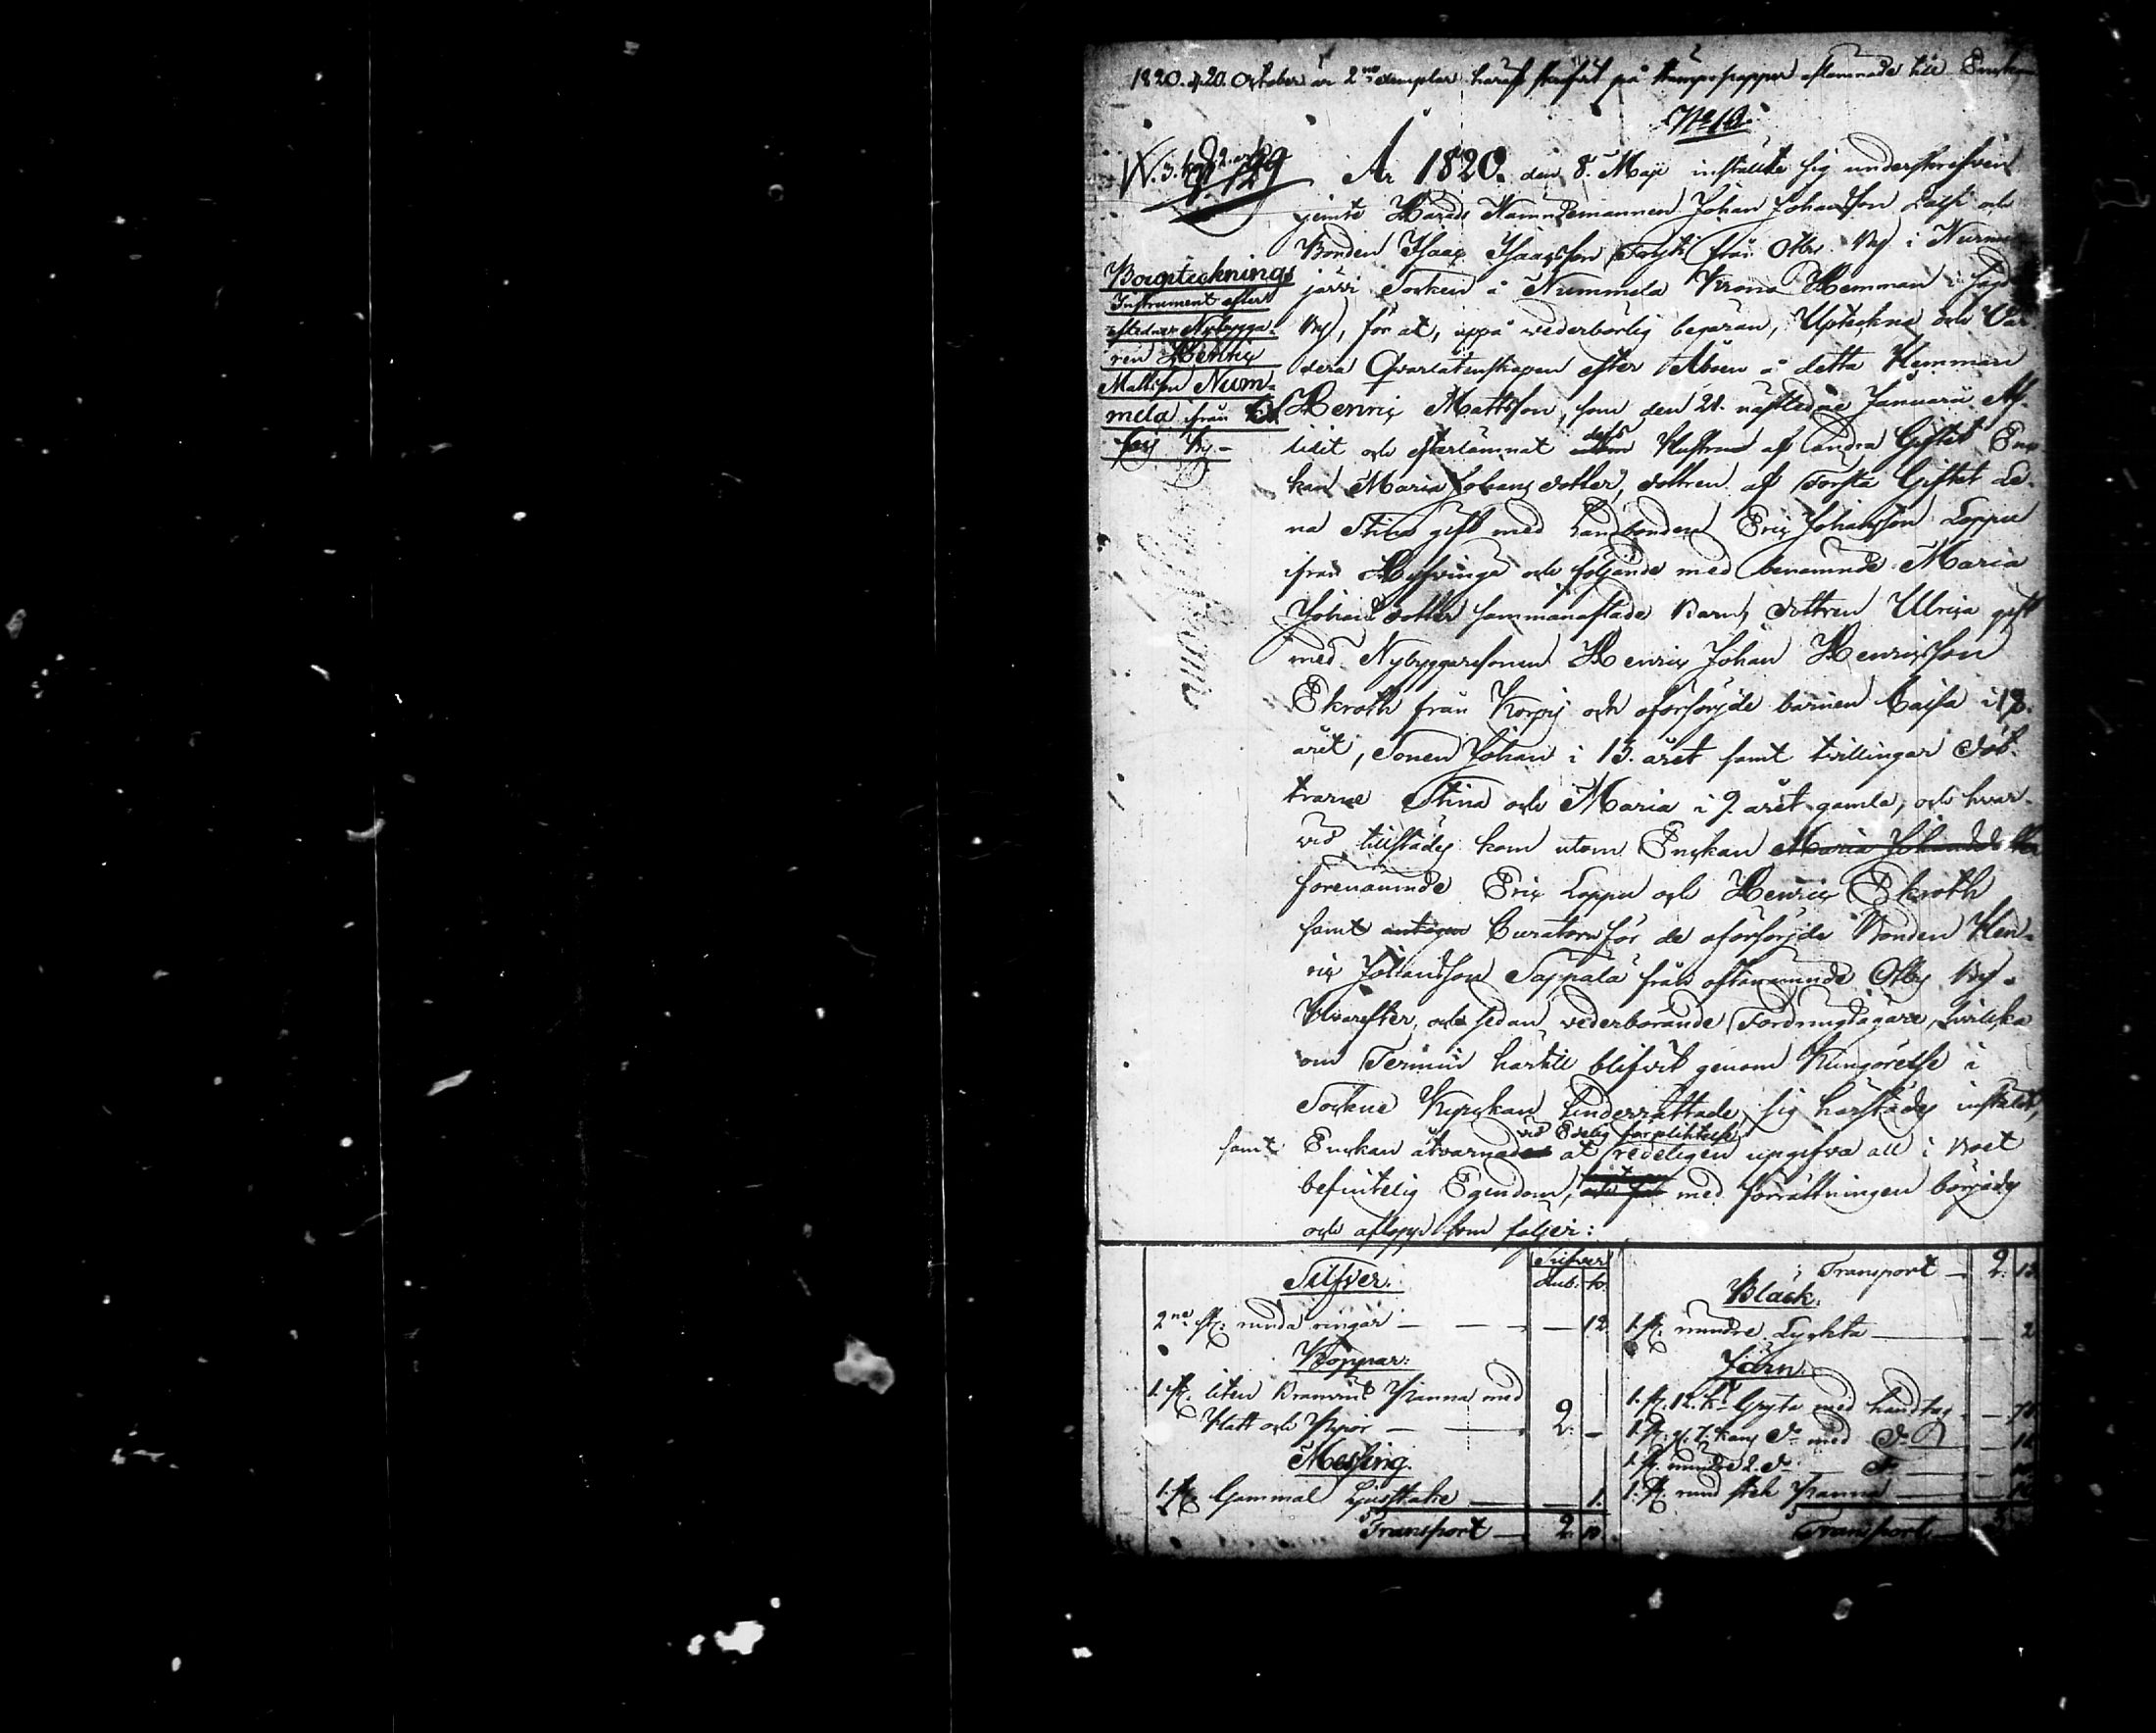 1820. d. 20. October är 2ne exemplar häraf skrifvit på stämpe papper aflämnade till Enckan
No 10.
År 1820. den 8. Maji instälte sig underskrifven
jemte Härads Nämndemannen Johan Johansson Lassi och
Bonden Isaac Isaacsson från Otby By i Nurmi-
järvi Socken å Nummela Krono Hemman i sagde
By, för at, uppå vederbörlig begäran, Upteckna och Vär-
dera Qvarlåtenskapen efter Åboen å detta Hemman
Henric Mattsson, som den 21. nästledne Januarii Af-
lidit och efterlämnat dess Hustru af andra Giftet En-
kan Maria Johans dotter, dottren af Första Giftet Le-
na Stina gift med Landbonden Eric Johansson Loppu
ifrån Hyfvinge och följande med benämnde Maria
Johans dotter sammanaflade Barn, dottren Ulrica gift
med Nybyggaresonen Henric Johan Henricsson
Ekroth från Korpi och oförsörjde barnen Caisa i 18.
året, Sonen Johan i 15. året samt tvillingar Döt-
trarne Stina och Maria i 9. året gamla, och hvar-
vid tillstädes kom utom Enckan Maria Johansdotter
förenämnde Eric Loppu och Henric Ekroth
samt antagne Curatorn för de oförsörjde Bonden Hen-
ric Johansson Sappala från oftanämnde Otby By.
Hvarefter, och sedan vederbörande Fordringsägare, hvilka
om Termin härtill blifvit genom Kungörelse i
Sockne Kyrckan underrättade, sig härstädes instält,
samt Enckan åtvarnades vid Edelig förpliktelse at redeligen upgifva all i Boet
befintelig Egendom, med förrättningen börjades
och aflopp som följer:
Bouptecknings
Instrument efter
afledne Nybygga-
ren Henric
Mattsson Num-
mela ifrån Ot-
by By.-
Silfver
Rub. k.
Silfver.
2ne st. runda ringar — — — 12.
Koppar:
1. st. liten Branvins Panna med
Hatt och Pipor — — 2. —
Messing.
1. st. Gammal Ljusstake — — 1.
Transport — 2. 13.
Transport — 2. 13.
Bläck.
1. st. mindre Lyckta — — 2
Järn.
1. st. 12. k. Gryta med handtag —
1. st. 7. kans do med do —
1. st. mindre 2. do — do —
1. st. rund stek Panna —
Transport —